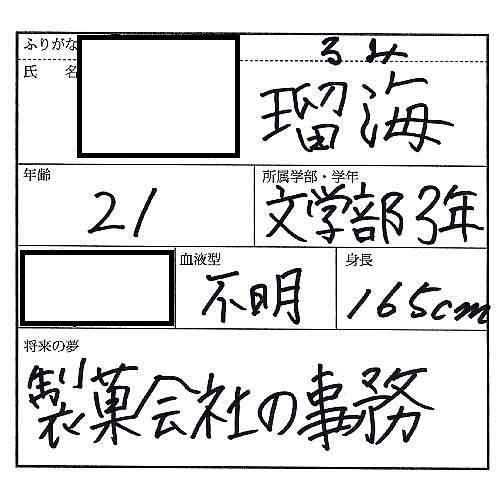 ふりがな るみ
氏 名 瑠海
年齢 所属学部・学年
21 文学部3年
血液型 身長
不明 165cm
将来の夢
製菓会社の事務